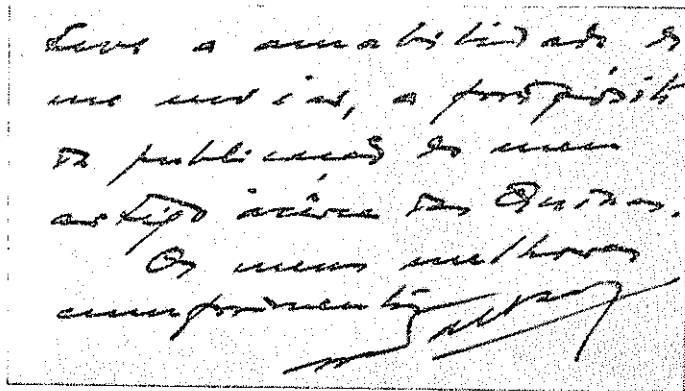 teve a amabilidade de
me enviar, a propósito
da publicação do meu
artigo acêrca das Quinas.
Os meus melhores
cumprimentos